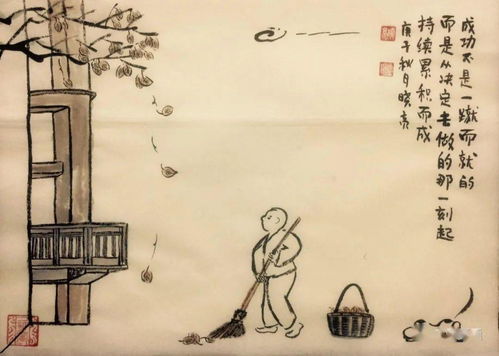 成功不是一蹴而就的
而是从决定去做的那一刻起
持续累积而成
庚子秋月晓亮